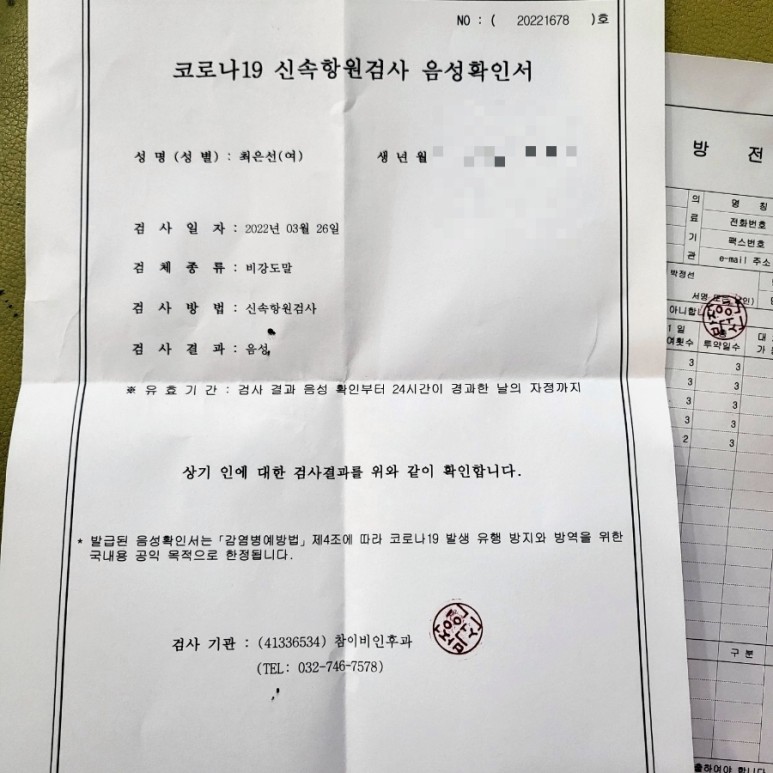 NO : ( 20221678 )호
코로나19 신속항원검사 음성확인서
성 명 (성 별) : 최은선(여) 생 년 월
검 사 일 자 : 2022년 03월 26일
검 체 종 류 : 비강도말
검 사 방 법 : 신속항원검사
검 사 결 과 : 음성
※ 유 효 기 간 : 검사 결과 음성 확인부터 24시간이 경과한 날의 자정까지
상기 인에 대한 검사결과를 위와 같이 확인합니다.
* 발급된 음성확인서는 「감염병예방법」 제4조에 따라 코로나19 발생 유행 방지와 방역을 위한
국내용 공익 목적으로 한정됩니다.
검사 기관 : (41336534) 참이비인후과
(TEL: 032-746-7578)
방 전
의료기관
명 칭
전화번호
팩스번호
e-mail 주소
박정선
아니합니
1 일
여횟수 투약일수
3 3
3 3
3 3
3 3
2 3
구 분
출하여야 합니다